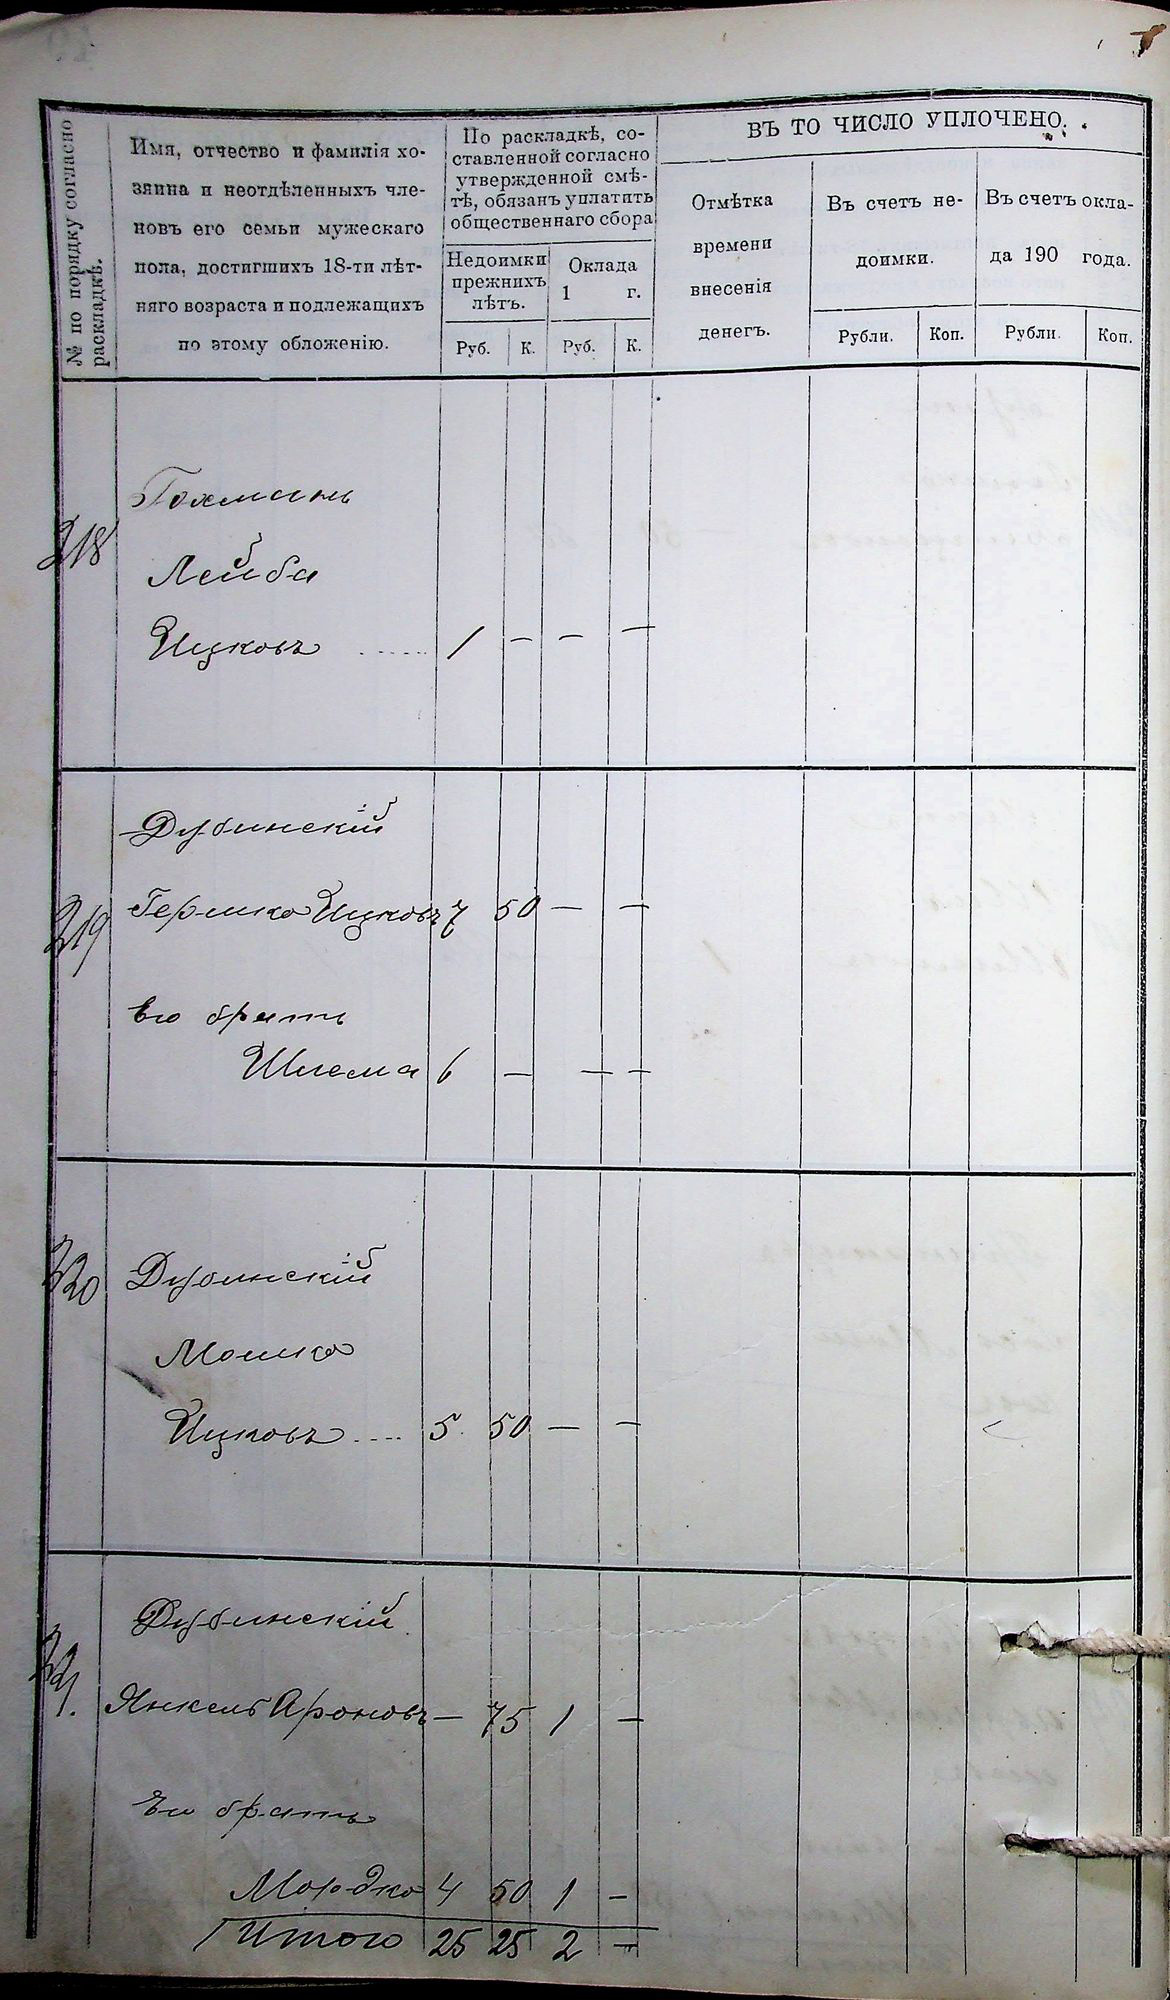 № по порядку согласно
раскладкѣ.
Имя, отчество и фамилія хо-
зяина и неотдѣленныхъ чле-
новъ его семьи мужескаго
пола, достигшихъ 18-ти лѣт-
няго возраста и подлежащихъ
по этому обложенію.
По раскладкѣ, со-
ставленной согласно
утвержденной смѣ-
тѣ, обязанъ уплатить
общественнаго сбора
Недоимки
прежнихъ
лѣтъ.
Оклада
1 г.
Руб. К. Руб. К.
ВЪ ТО ЧИСЛО УПЛОЧЕНО.
Отмѣтка
времени
внесенія
денегъ.
Въ счетъ не-
доимки.
Въ счетъ окла-
да 190 года.
Рубли. Коп. Рубли. Коп.
Гохманъ
318
Лейба
Ицковъ ..... 1 — — —
Дубинскій
319 Гершко Ицковъ 7 50 — —
Его братъ
Шлема 6 — — —
320 Дубинскій
Мошко
Ицковъ .... 5 50 — —
Дубинскій
321. Янкель Ароновъ — 75 1 —
Его братъ
Мордко 4 50 1 —
Итого 25 25 2 —